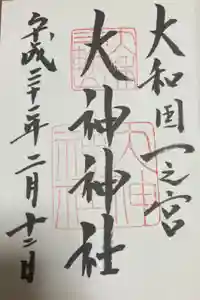 大和国一之宮
大神神社
平成三十一年二月十二日